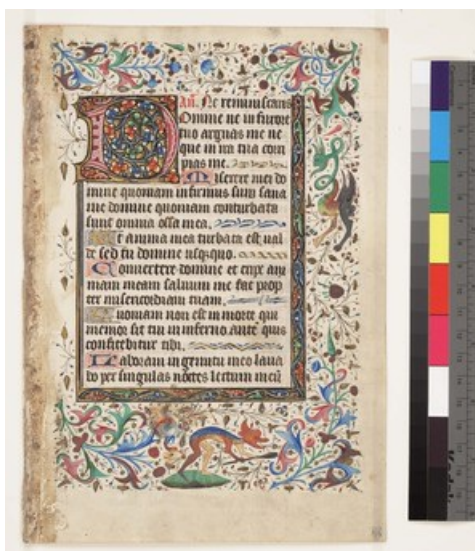 Añ. Ne reminiscaris
Domine ne in furore
tuo arguas me ne
que in ira tua corri
pias me.
Miserere mei do
mine quoniam infirmus sum sana
me domine quoniam conturbata
sunt omnia ossa mea.
Et anima mea turbata est val
de sed tu domine usquequo.
Convertere domine et eripe ani
mam meam salvum me fac prop
ter misericordiam tuam.
Quoniam non est in morte qui
memor sit tui in inferno autē quis
confitebitur tibi.
Laboravi in gemitu meo lava
bo per singulas noctes lectum meū